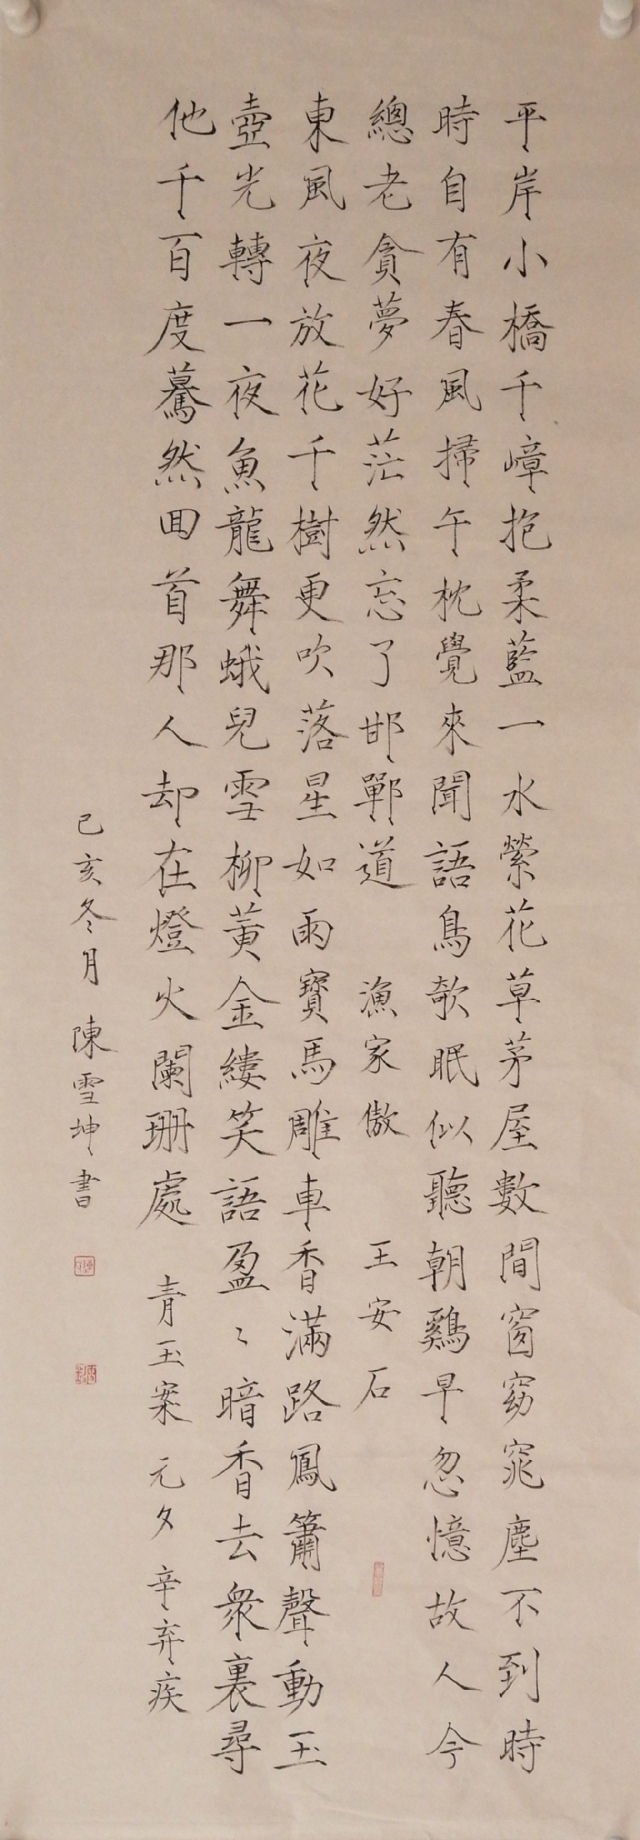 平岸小橋千嶂抱柔藍一水縈花草茅屋數間窗窈窕塵不到時
時自有春風掃午枕覺來聞語鳥欹眠似聽朝鷄早忽憶故人今
總老貪夢好茫然忘了邯鄲道 漁家傲 王安石
東風夜放花千樹更吹落星如雨寶馬雕車香滿路鳳簫聲動玉
壺光轉一夜魚龍舞蛾兒雪柳黃金縷笑語盈〻暗香去衆裏尋
他千百度驀然回首那人却在燈火闌珊處 青玉案 元夕 辛弃疾
己亥冬月 陳雪坤書